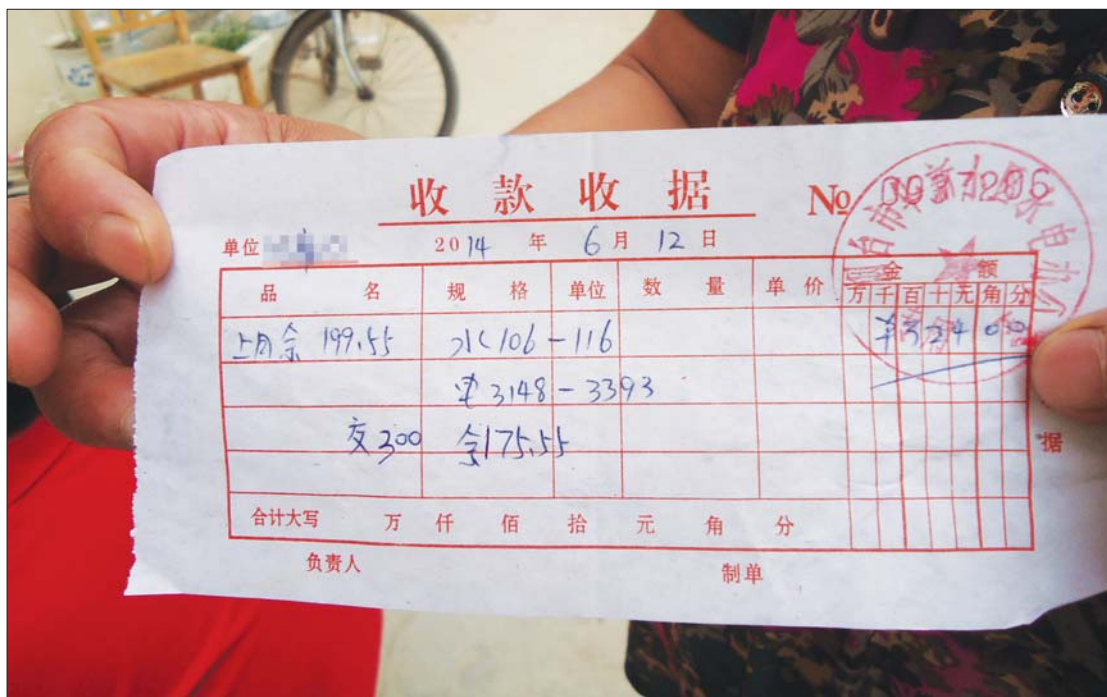 收款收据 №
单位 2014 年 6 月 12 日
品名 规格 单位 数量 单价 金额
万 千 百 十 元 角 分
上月余 199.55 水 106-116 ¥324 00
电 3148-3393
交300 余175.55
据
合计大写 万 仟 佰 拾 元 角 分
负责人 制单